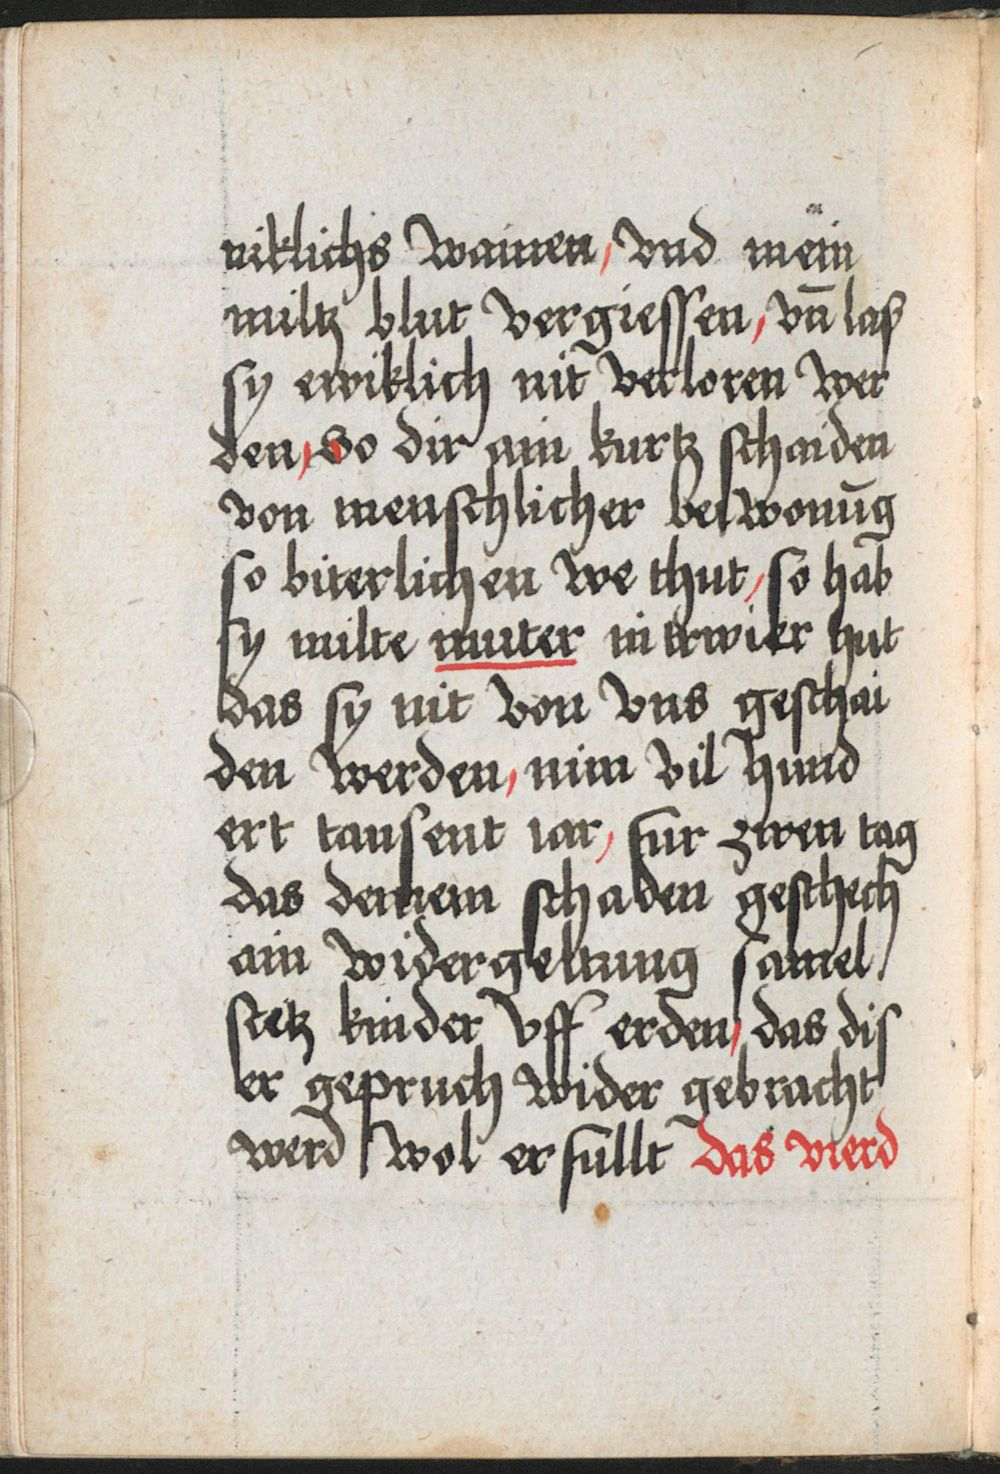 niklichs wainen, vnd mein
miltz blut vergiessen, vn̄ las
sy ewiklich nit verloren wer
den, So dir ain kurtz schaiden
von menschlicher beiwonūg
so biterlichen we thut, so hab
sy milte muter in trwier hut
das sy nit von vns geschai
den werden, nim vil hund
ert tausent iar, fur zwen tag
das deinem schaden geschech
ain widergeltung samel
stetz kinder vff erden, das dis
er gepruch wider gebracht
werd wol erfullt das vierd